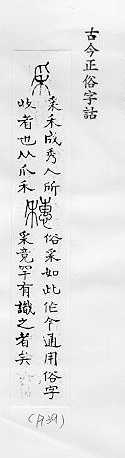 古今正俗字詁
采
采禾成秀人所
收者也从爪禾
穗
俗采如此作今通用俗字
采竟罕有識之者矣